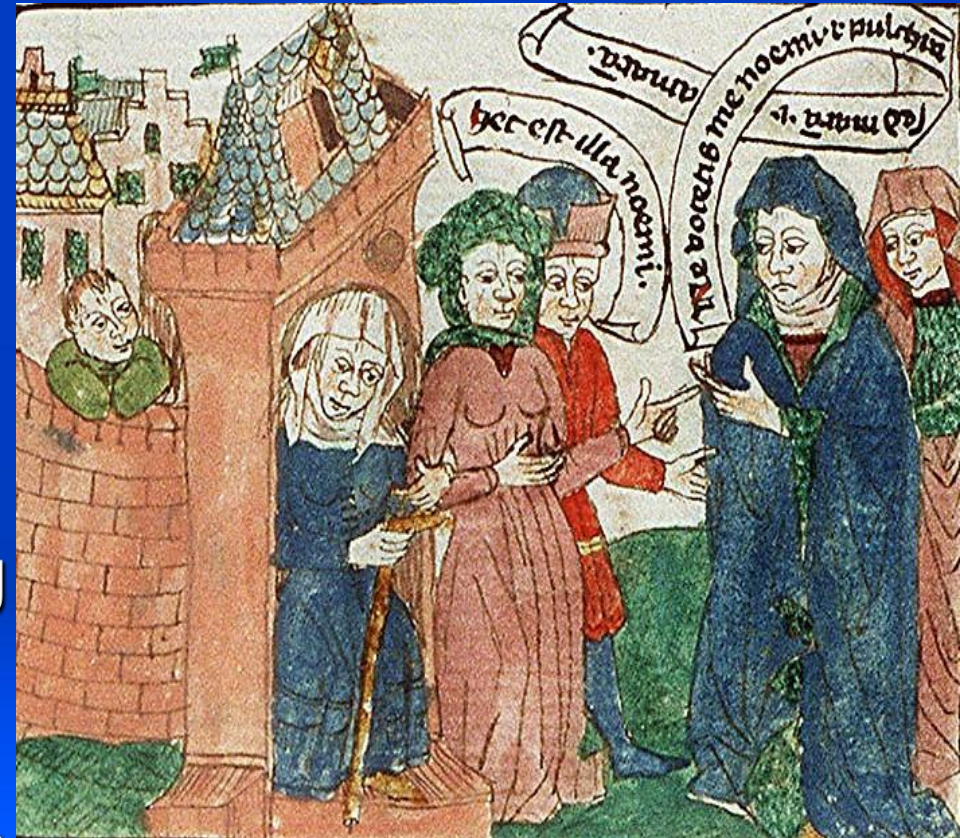 hec est illa noemi.
Ne vocetis me noemi .i. pulchrā
sed marā .i.
amarā.